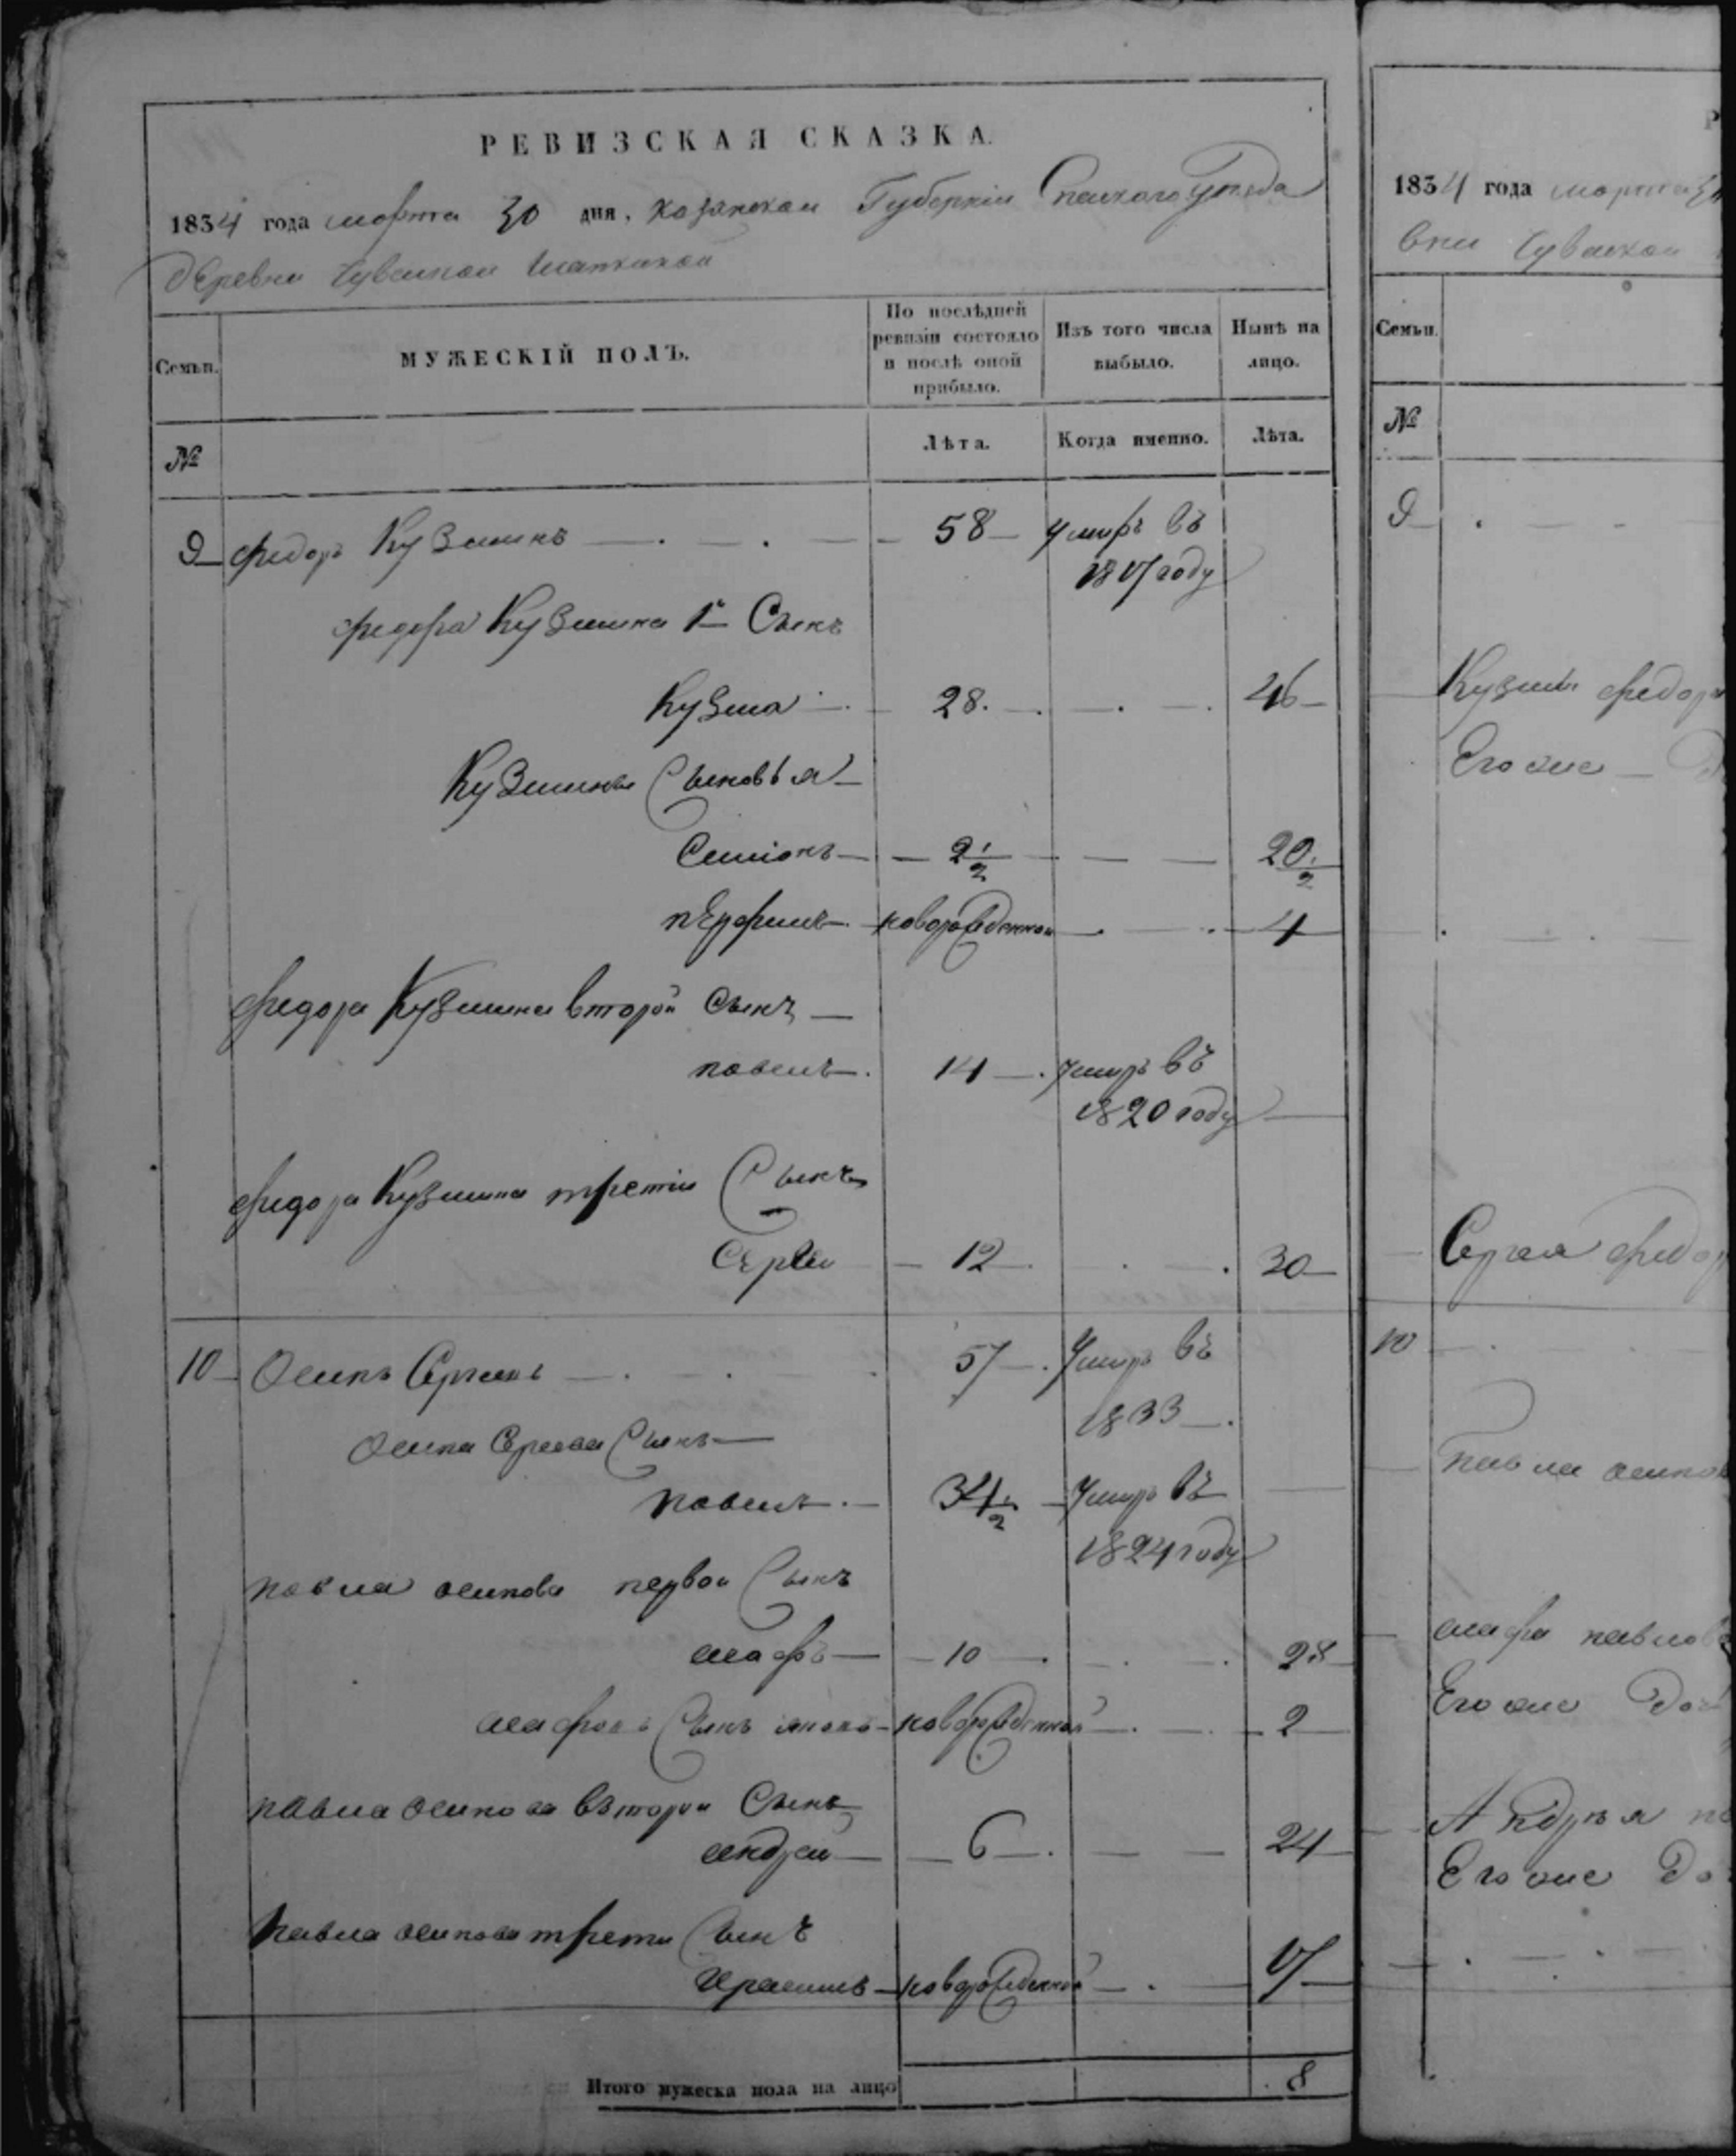 РЕВИЗСКАЯ СКАЗКА.
1834 года марта 30 дня, Казанскои Губернiи Спаскаго Уезда
деревни Чуваскои
Семьи.
МУЖЕСКIЙ ПОЛЪ.
По послѣдней ревизiи состояло и послѣ оной прибыло.
Изъ того числа выбыло.
Нынѣ на лицо.
№
Лѣта.
Когда именно.
Лѣта.
9 федоръ Кузминъ 58 умиръ въ
1817 году
федора Кузмина 1й Сынъ
Кузма 28. 46
Кузмины Сыновья
Симiонъ 2 1/2 20 1/2
новорожденнои 4
федора Кузмина второй Сынъ
павилъ 14 умиръ въ
1820 году
федора Кузмина третiи Сынъ
Сергеи 12 30
10 Осипъ Сергиевъ 57 умиръ въ
1833
Осипа Сергеева Сынъ
павилъ 34 1/2 умиръ въ
1824 году
павла осипова первои Сынъ
10 28
Сынъ новорожденной 2
павла осипова второи Сынъ
андрей 6 24
павла осипова трети Сынъ
новорожденной 17
Итого мужеска пола на лицо 8
1834 года марта 30
вни Чуваскои
Семьи.
№
9
Кузмы федора
Егоже
Сергея федор
10
павла осипов
павлов
Егоже доч
Андрея па
Егоже до